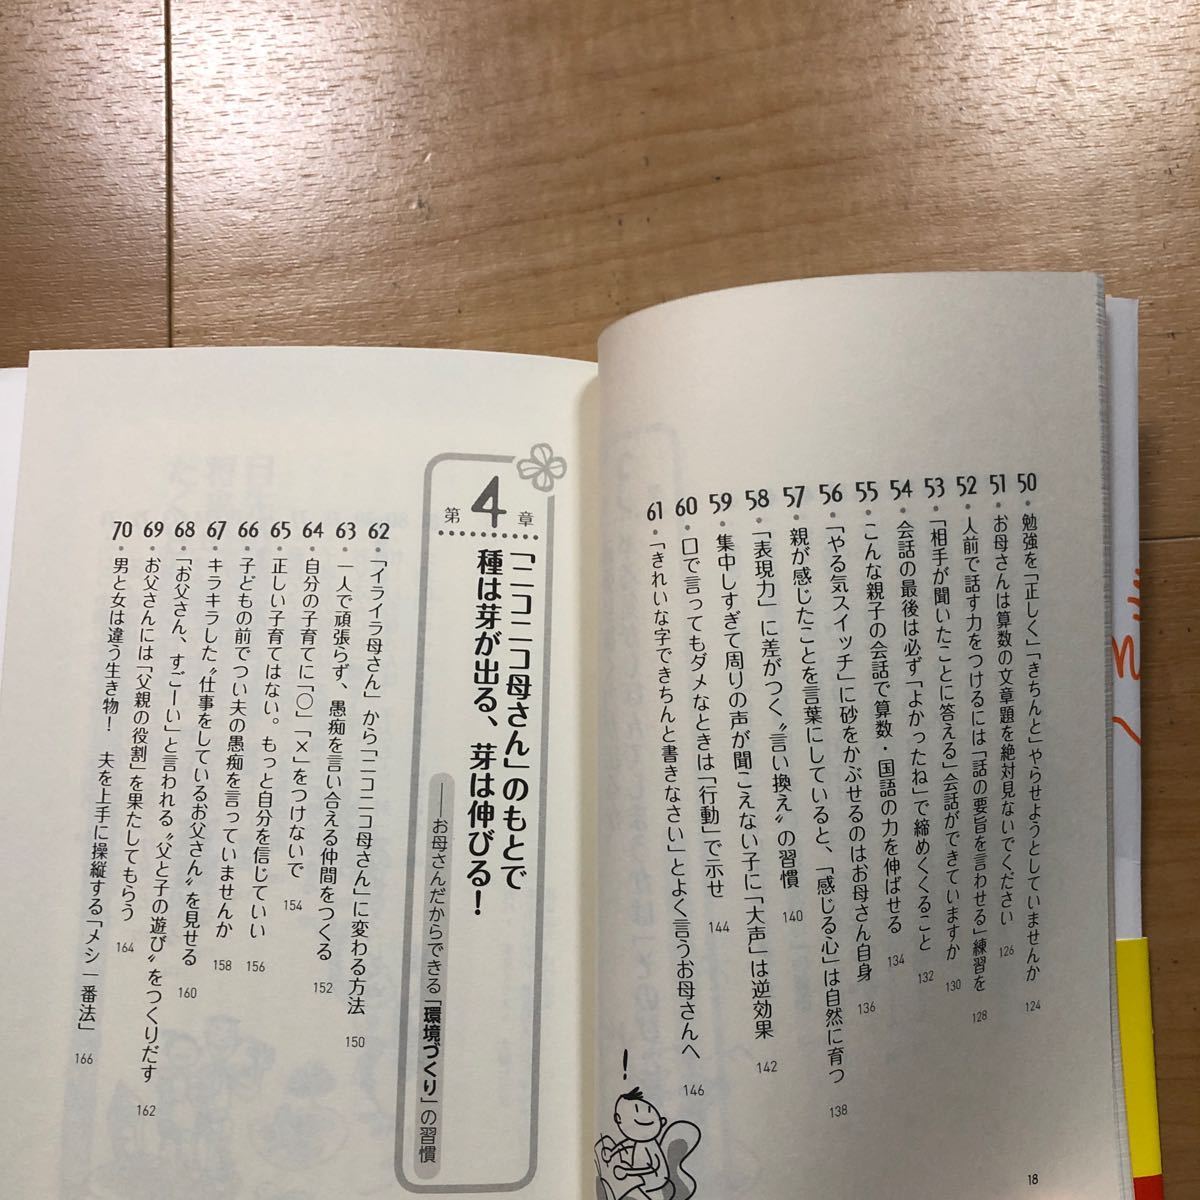 50・勉強を「正しく」「きちんと」やらせようとしていませんか 124
51・お母さんは算数の文章題を絶対見ないでください 126
52・人前で話す力をつけるには「話の要旨を言わせる」練習を 128
53・「相手が聞いたことに答える」会話ができていますか 130
54・会話の最後は必ず「よかったね」で締めくくること 132
55・こんな親子の会話で算数・国語の力を伸ばせる 134
56・「やる気スイッチ」に砂をかぶせるのはお母さん自身 136
57・親が感じたことを言葉にしていると、「感じる心」は自然に育つ 138
58・「表現力」に差がつく〝言い換え〟の習慣 140
59・集中しすぎて周りの声が聞こえない子に「大声」は逆効果 142
60・口で言ってもダメなときは「行動」で示せ 144
61・「きれいな字できちんと書きなさい」とよく言うお母さんへ 146
!
18
第4章
「ニコニコ母さん」のもとで
種は芽が出る、芽は伸びる!
――お母さんだからできる「環境づくり」の習慣
62・「イライラ母さん」から「ニコニコ母さん」に変わる方法 150
63・一人で頑張らず、愚痴を言い合える仲間をつくる 152
64・自分の子育てに「○」「×」をつけないで 154
65・正しい子育てはない。もっと自分を信じていい 156
66・子どもの前でつい夫の愚痴を言っていませんか 158
67・キラキラした〝仕事をしているお父さん〟を見せる 160
68・「お父さん、すごーい」と言われる〝父と子の遊び〟をつくりだす 162
69・お父さんには「父親の役割」を果たしてもらう 164
70・男と女は違う生き物! 夫を上手に操縦する「メシ一番法」 166